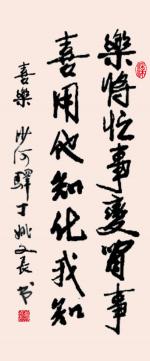 樂將忙事變閒事
喜用他知化我知
喜樂 沙河驛丁姚文長书